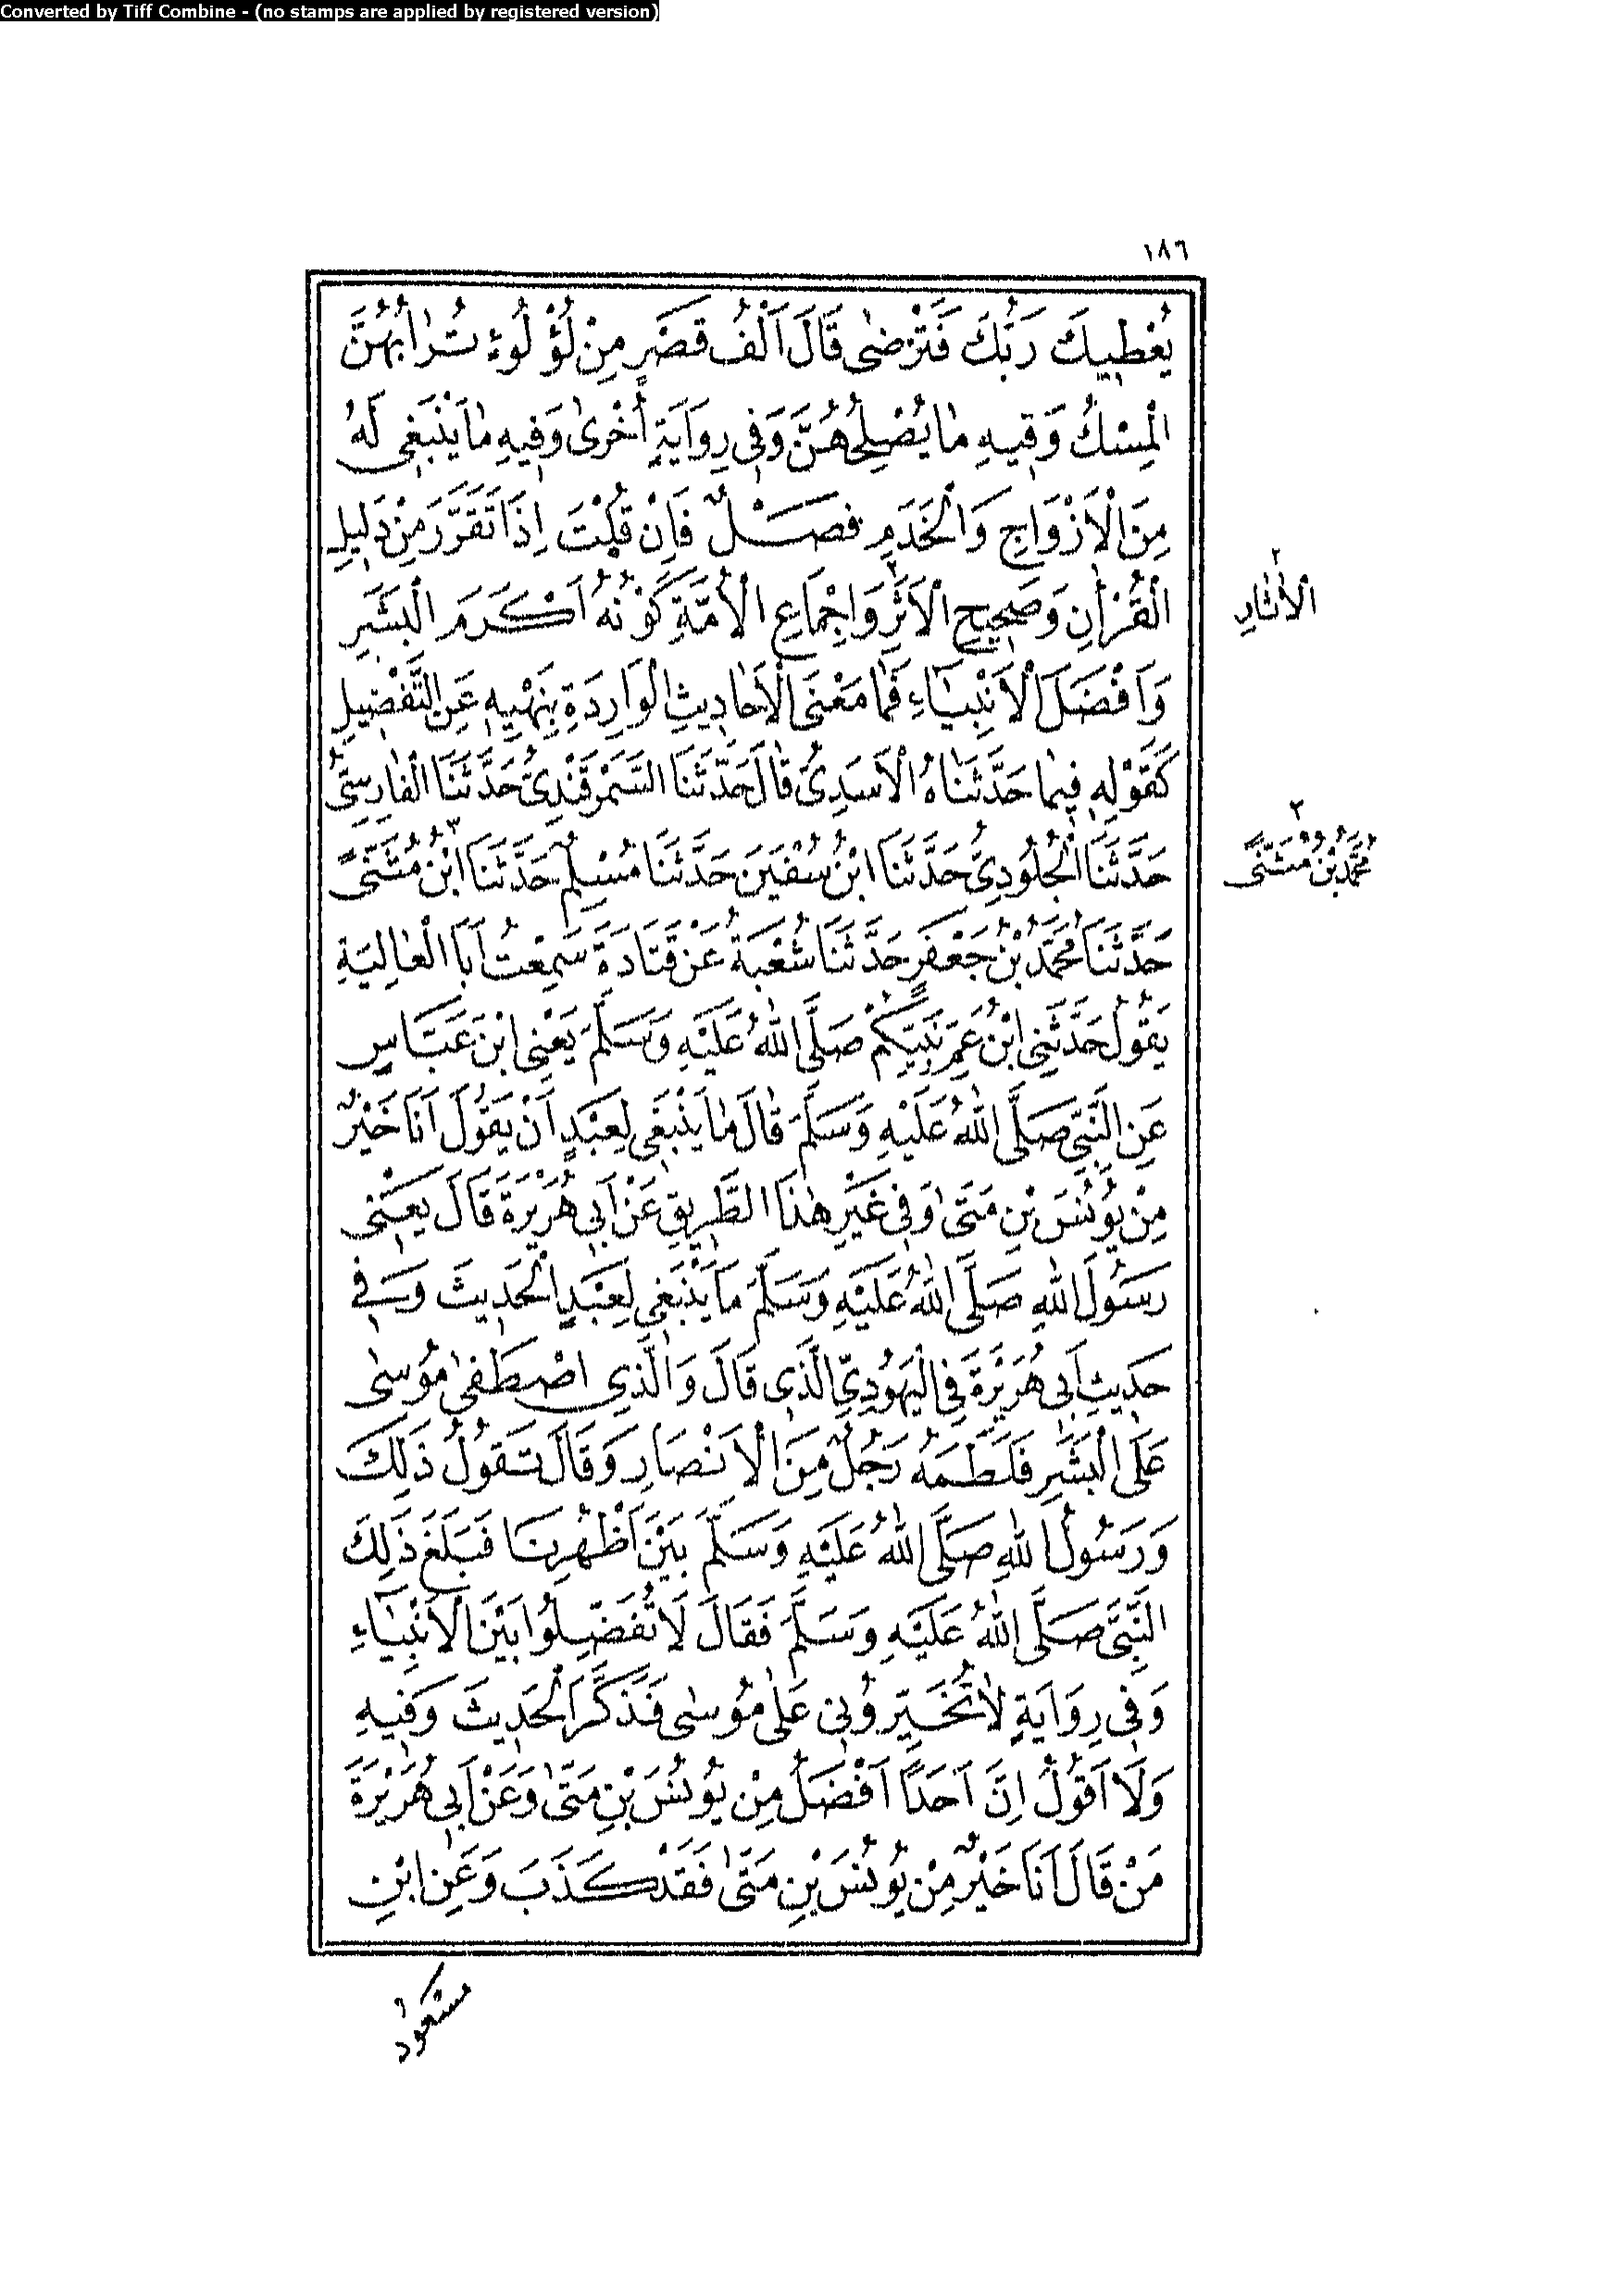 Converted by Tiff Combine - (no stamps are applied by registered version)
١٨٦
يُعْطِيكَ رَبُّكَ فَتَرْضٰى قَالَ اَلْفُ قَصْرٍ مِنْ لُؤْلُوءٍ تُرٰابُهُنَّ
الْمِسْكُ وَفِيهِ مٰا يُصْلِحُهُنَّ وَفِى رِوَايَةٍ اُخْرىٰ وَفِيهِ مٰا يَنْبَغِى لَهُ
مِنَ الْاَزْوَاجِ وَالْخَدَمِ فَصْلٌ فَاِنْ قُلْتَ اِذَا تَقَرَّرَ مِنْ دَلِيلِ
الْقُرْاٰنِ وَصَحِيحِ الْاَثَرِ وَاِجْمَاعِ الْاُمَّةِ كَوْنُهُ اَكْرَمَ الْبَشَرِ
وَاَفْضَلَ الْاَنْبِيَاءِ فَمٰا مَعْنَى الْاَحَادِيثِ الْوَارِدَةِ بِنَهْيِهِ عَنِ التَّفْضِيلِ
كَقَوْلِهِ فِيمٰا حَدَّثَنٰاهُ الْاَسَدِىُّ قٰالَ حَدَّثَنَا السَّمَرْقَنْدِىُّ حَدَّثَنَا الْفٰارِسِىُّ
حَدَّثَنَا الْجُلُودِىُّ حَدَّثَنَا ابْنُ سُفْيٰنَ حَدَّثَنَا مُسْلِمٌ حَدَّثَنَا ابْنُ مُثَنًّى
حَدَّثَنَا مُحَمَّدُ بْنُ جَعْفَرٍ حَدَّثَنَا شُعْبَةُ عَنْ قَتَادَةَ سَمِعْتُ اَبَا الْعٰالِيَةِ
يَقُولُ حَدَّثَنِى ابْنُ عَمِّ نَبِيِّكُمْ صَلَّى اللّٰهُ عَلَيْهِ وَسَلَّمَ يَعْنِى ابْنَ عَبَّاسٍ
عَنِ النَّبِىِّ صَلَّى اللّٰهُ عَلَيْهِ وَسَلَّمَ قٰالَ مٰا يَنْبَغِى لِعَبْدٍ اَنْ يَقُولَ اَنَا خَيْرٌ
مِنْ يُونُسَ بْنِ مَتّٰى وَفِى غَيْرِ هٰذَا الطَّرِيقِ عَنْ اَبِى هُرَيْرَةَ قَالَ يَعْنِى
رَسُولَ اللّٰهِ صَلَّى اللّٰهُ عَلَيْهِ وَسَلَّمَ مَا يَنْبَغِى لِعَبْدٍ الْحَدِيثَ وَفِى
حَدِيثِ اَبِى هُرَيْرَةَ فِى الْيَهُودِىِّ الَّذِى قَالَ وَالَّذِى اصْطَفٰى مُوسٰى
عَلَى الْبَشَرِ فَلَطَمَهُ رَجُلٌ مِنَ الْاَنْصَارِ وَقَالَ تَقُولُ ذَلِكَ
وَرَسُولُ اللّٰهِ صَلَّى اللّٰهُ عَلَيْهِ وَسَلَّمَ بَيْنَ اَظْهُرِنَا فَبَلَغَ ذَلِكَ
النَّبِىَّ صَلَّى اللّٰهُ عَلَيْهِ وَسَلَّمَ فَقَالَ لَا تُفَضِّلُوا بَيْنَ الْاَنْبِيٰاءِ
وَفِى رِوَايَةٍ لٰا تُخَيِّرُونِى عَلٰى مُوسٰى فَذَكَرَ الْحَدِيثَ وَفِيهِ
وَلَا اَقُولُ اِنَّ اَحَدًا اَفْضَلُ مِنْ يُونُسَ بْنِ مَتّٰى وَعَنْ اَبِى هُرَيْرَةَ
مَنْ قَالَ اَنَا خَيْرٌ مِنْ يُونُسَ بْنِ مَتّٰى فَقَدْ كَذَبَ وَعَنِ ابْنِ
مسعود
٢
الْاٰثَارِ
٣
مُحَمَّدُ بْنُ مُثَنًّى